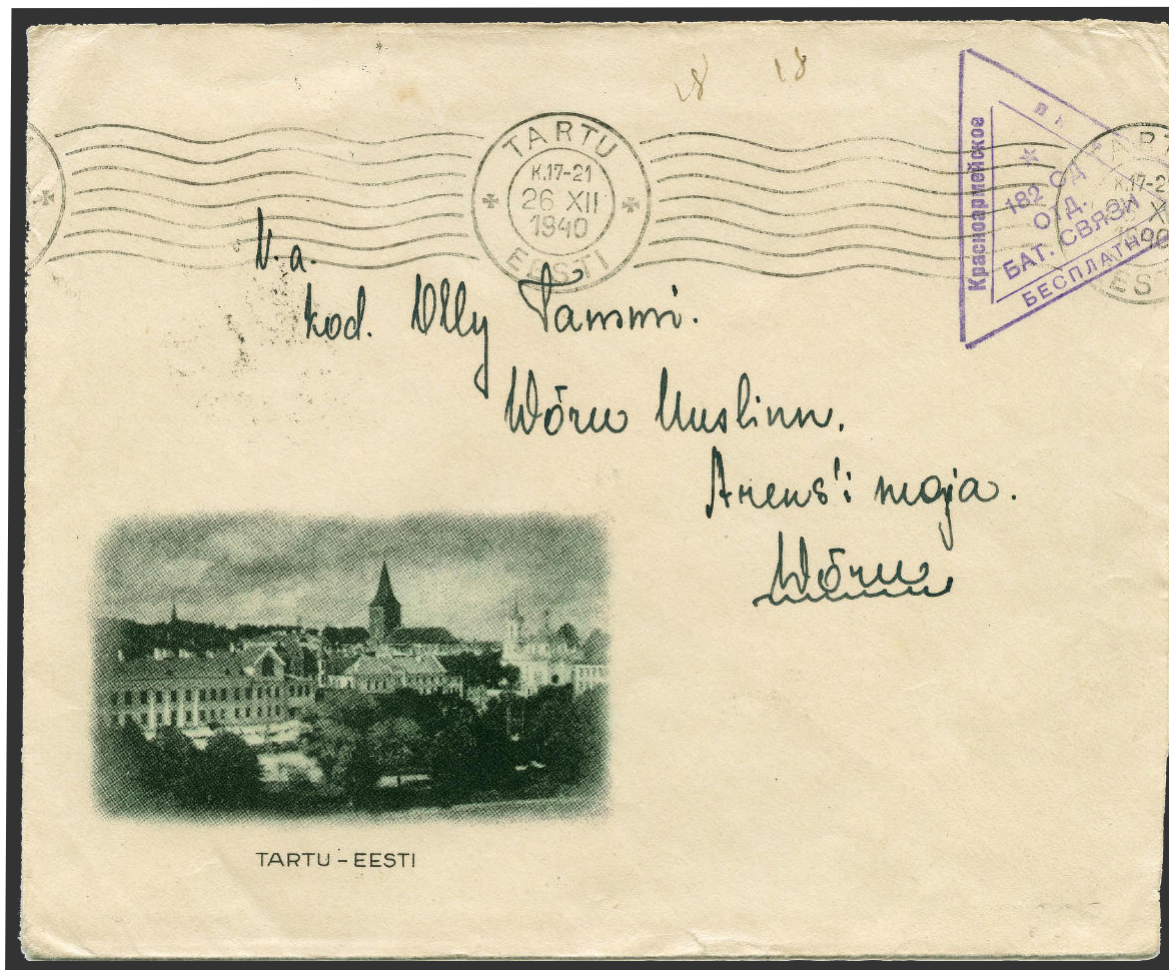 18 18
TARTU
K.17-21
26 XII
1940
EESTI
Красноармейское
182 СД
ОТД.
БАТ. СВЯЗИ
БЕСПЛАТНО
V. a.
kod. Olly Tammi.
Wõru Uuslinn.
Arens'i maja.
Wõru
TARTU - EESTI